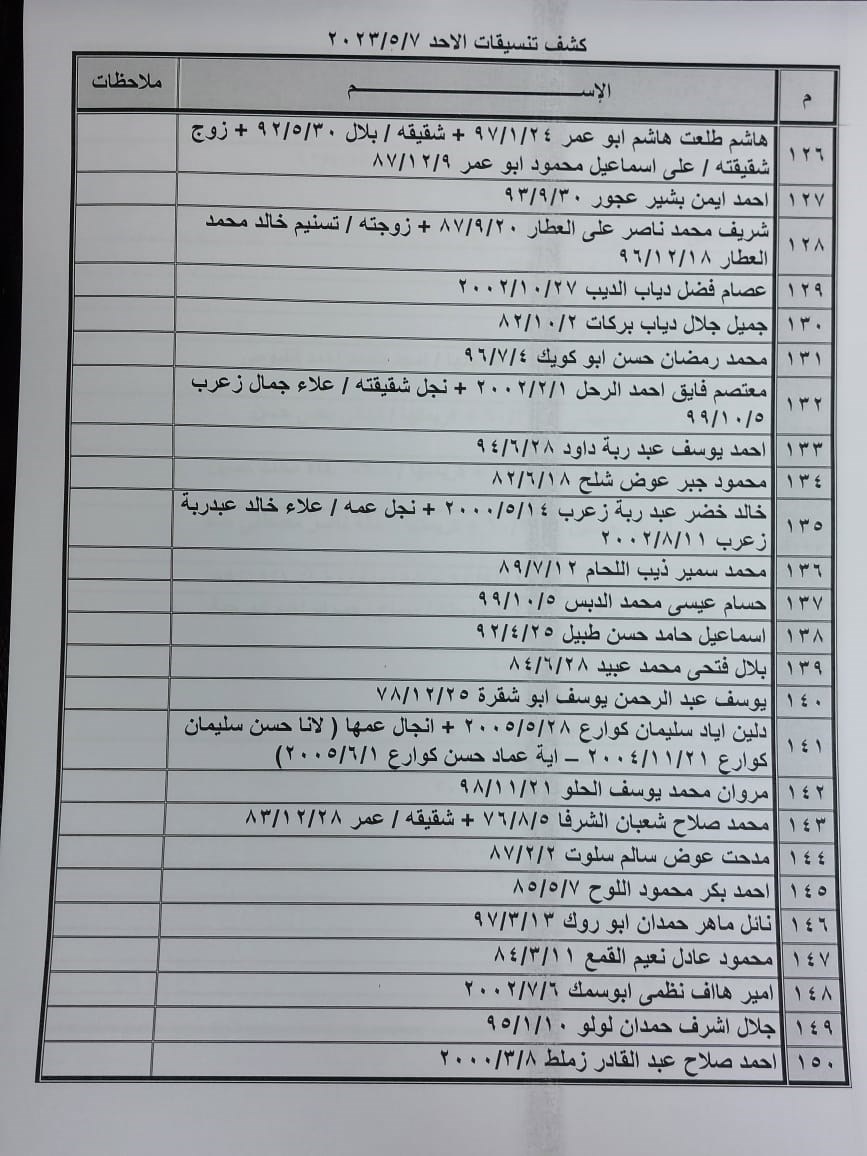 كشف تنسيقات الاحد ٢٠٢٣/٥/٧
م الإســـم ملاحظات
١٢٦ هاشم طلعت هاشم ابو عمر ٩٧/١/٢٤ + شقيقه / بلال ٩٢/٥/٣٠ + زوج
شقيقته / على اسماعيل محمود ابو عمر ٨٧/١٢/٩
١٢٧ احمد ايمن بشير عجور ٩٣/٩/٣٠
١٢٨ شريف محمد ناصر على العطار ٨٧/٩/٢٠ + زوجته / تسنيم خالد محمد
العطار ٩٦/١٢/١٨
١٢٩ عصام فضل دياب الديب ٢٠٠٢/١٠/٢٧
١٣٠ جميل جلال دياب بركات ٨٢/١٠/٢
١٣١ محمد رمضان حسن ابو كويك ٩٦/٧/٤
١٣٢ معتصم فايق احمد الرحل ٢٠٠٢/٢/١ + نجل شقيقته / علاء جمال زعرب
٩٩/١٠/٥
١٣٣ احمد يوسف عبد ربة داود ٩٤/٦/٢٨
١٣٤ محمود جبر عوض شلح ٨٢/٦/١٨
١٣٥ خالد خضر عبد ربة زعرب ٢٠٠٠/٥/١٤ + نجل عمه / علاء خالد عبدربة
زعرب ٢٠٠٢/٨/١١
١٣٦ محمد سمير ذيب اللحام ٨٩/٧/١٢
١٣٧ حسام عيسى محمد الدبس ٩٩/١٠/٥
١٣٨ اسماعيل حامد حسن طبيل ٩٢/٤/٢٥
١٣٩ بلال فتحى محمد عبيد ٨٤/٦/٢٨
١٤٠ يوسف عبد الرحمن يوسف ابو شقرة ٧٨/١٢/٢٥
١٤١ دلين اياد سليمان كوارع ٢٠٠٥/٥/٢٨ + انجال عمها ( لانا حسن سليمان
كوارع ٢٠٠٤/١١/٢١ – اية عماد حسن كوارع ٢٠٠٥/٦/١)
١٤٢ مروان محمد يوسف الحلو ٩٨/١١/٢١
١٤٣ محمد صلاح شعبان الشرفا ٧٦/٨/٥ + شقيقه / عمر ٨٣/١٢/٢٨
١٤٤ مدحت عوض سالم سلوت ٨٧/٢/٢
١٤٥ احمد بكر محمود اللوح ٨٥/٥/٧
١٤٦ نائل ماهر حمدان ابو روك ٩٧/٣/١٣
١٤٧ محمود عادل نعيم القمع ٨٤/٣/١١
١٤٨ امير هااف نظمى ابوسمك ٢٠٠٢/٧/٦
١٤٩ جلال اشرف حمدان لولو ٩٥/١/١٠
١٥٠ احمد صلاح عبد القادر زملط ٢٠٠٠/٣/٨